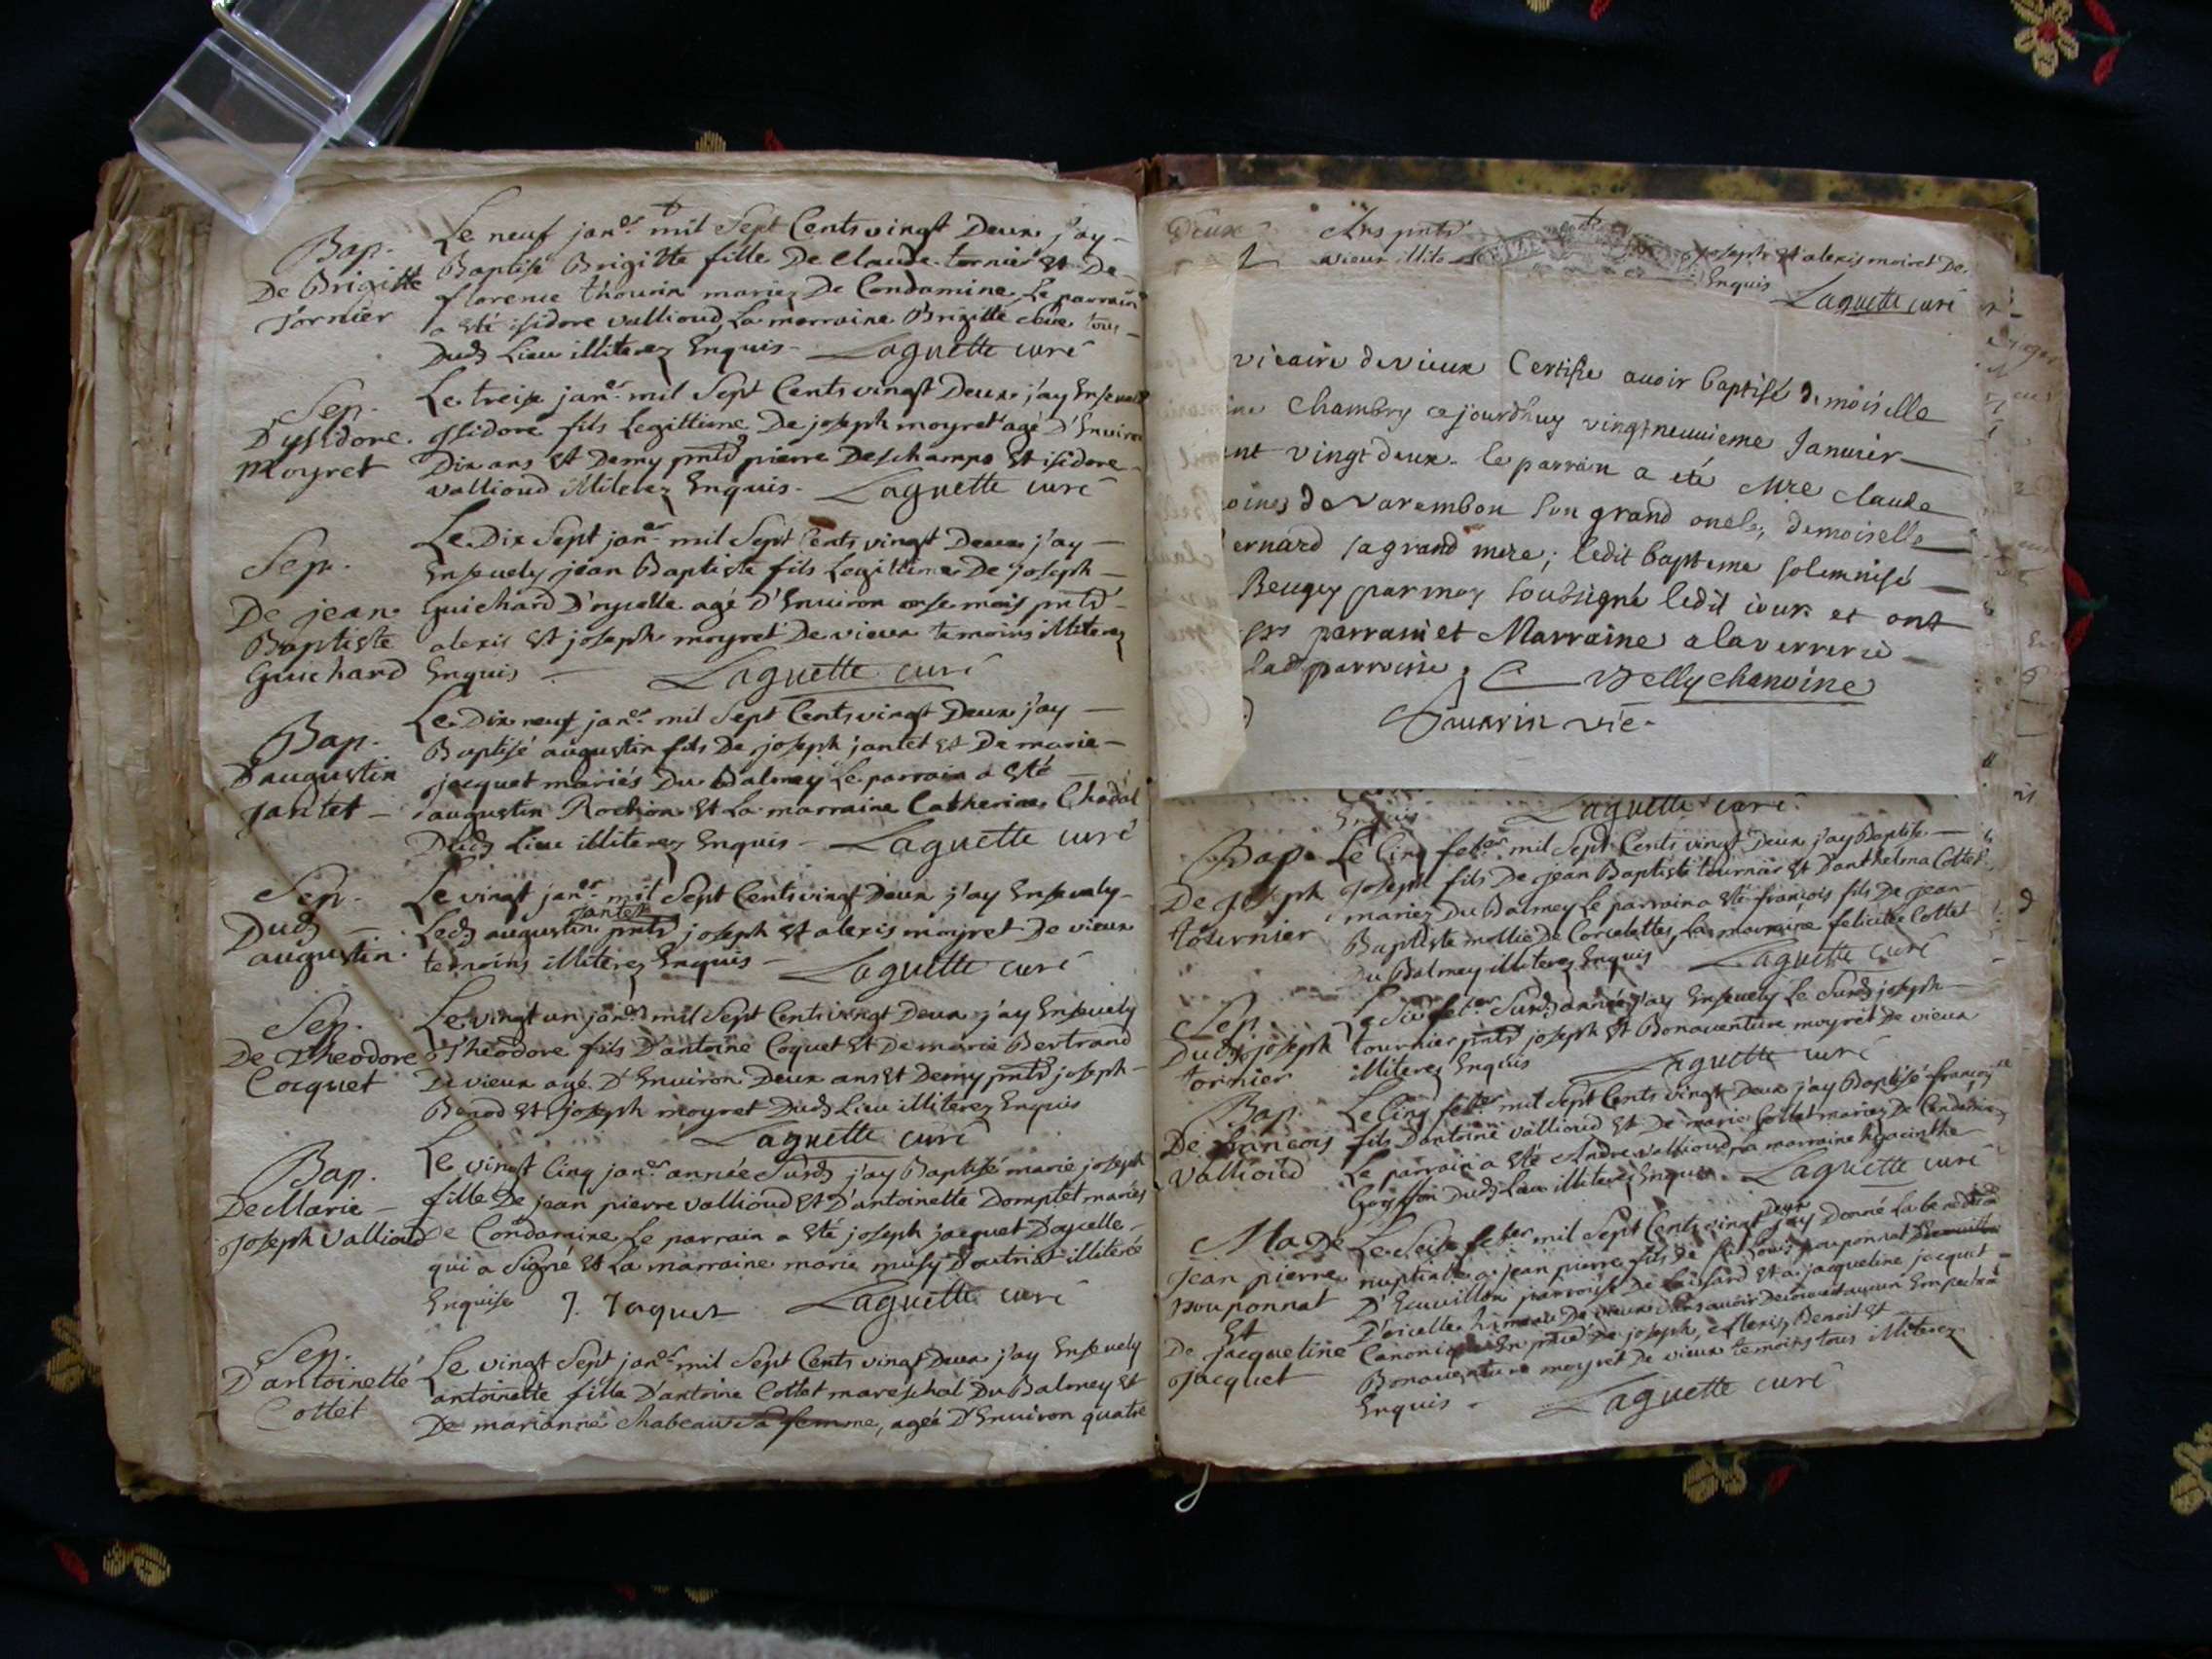 Bap.
De Brigitte
Tornier
Le neuf janer mil Sept Cents vingt Deux j'ay
Baptisé Brigitte fille De Claude tornier et De
florence thourin mariez De Condamine, Le parrain
a esté isidore vallioud, La marraine Brigitte tous
Dudt Lieu illiterez Enquis - Laguette curé
Sep.
D'ysidore
Moyret
Le treise janer mil Sept Cents vingt Deux j'ay Ensevely
ysidore fils Legittime De joseph moyret agé D'Environ
Dix ans Et Demy pntd pierre Deschamps Et isidore
vallioud illiterez Enquis - Laguette curé
Sep.
De jean
Baptiste
Guichard
Le Dix Sept janer mil Sept Cents vingt Deux j'ay
Ensevely jean Baptiste fils Legittime De joseph
Guichard D'oycelle agé D'Environ onse mois pntd
alexis Et joseph moyret De vieux temoins illiterez
Enquis - Laguette curé
Bap.
D'augustin
Jantet
Le Dix neuf janer mil Sept Cents vingt Deux j'ay
Baptisé augustin fils De joseph jantet Et De marie
jacquet mariés Du Balmey Le parrain a Esté
augustin Rochon Et La marraine Catherine Chadal
Dudt Lieu illiterez Enquis - Laguette curé
Sep.
Dudt
augustin
Le vingt janer mil Sept Cents vingt Deux j'ay Ensevely
jantet
Ledt augustin pntd joseph Et alexis moyret De vieux
temoins illiterez Enquis - Laguette curé
Sep.
De Theodore
Cocquet
Le vingt un janer mil Sept Cents vingt Deux j'ay Ensevely
Théodore fils D'antoine Coquet Et De marie Bertrand
De vieux agé D'Environ Deux ans Et Demy pntd joseph
Benod Et joseph moyret Dudt Lieu illiterez Enquis
Laguette curé
Bap.
De Marie
Joseph Vallioud
Le vingt Cinq janer année Susdt j'ay Baptisé marie joseph
fille De jean pierre vallioud Et D'antoinette Domptet mariés
De Condamine Le parrain a Esté joseph jacquet D'oycelle
qui a Signé Et La marraine marie musy D'outriat illiterée
Enquise J. Jaques Laguette curé
Sep.
D'antoinette
Cottet
Le vingt Sept janer mil Sept Cents vingt Deux j'ay Ensevely
antoinette fille D'antoine Cottet mareschal Du Balmey Et
De marianne Chabeau Sa femme, agée D'Environ quatre
Deux Ans pntd joseph Et alexis moiret De
vieux illite Enquis
Laguette curé
vicaire de vieux Certifie avoir baptisé demoiselle
Chambry cejourdhuy vingtneuuieme Januier
ent vingt deux. le parrain a eté Mre claude
oines de Varembon son grand oncle, demoiselle
ernard sa grand mere; ledit bapteme solemnisé
Beugey par moy soussigné ledit jour et ont
parrain et Marraine a la verrerie
ladt parroisse, C Velly chanoine
vic.
Enquis Laguette curé
Bap.
De Joseph
tournier
Le Cinq feber mil Sept Cents vingt Deux j'ay Baptisé
Joseph fils De jean Baptiste tournier Et D'anthelma Cottet
mariez Du Balmey Le parrain a Esté françois fils De jean
Baptiste mollie De Corcelettes, La marraine felicitée Cottet
Du Balmey illiterez Enquis Laguette curé
Sep.
Dudt joseph
tornier
Le Six feber Susdt année j'ay Ensevely Le Susdt joseph
tournier pntd joseph Et Bonaventure moyret De vieux
illiterez Enquis Laguette curé
Bap.
De francois
Vallioud
Le Cinq feber mil Sept Cents vingt Deux j'ay Baptisé françois
fils D'antoine vallioud Et De marie Cottet mariez De Condamine
Le parrain a Esté Andre vallioud La marraine hyacinthe
Goyffon Dudt Lieu illiterez Enquis Laguette curé
Ma De
jean pierre
pouponnat
Et
De jacqueline
jacquet
Deux
Le Seise feber mil Sept Cents vingt j'ay Donné La benediction
nuptiale a jean pierre fils De feu Louis pouponnat
D'Ecuvillon parroisse De Leissard Et a jacqueline jacquet
D'oicelle hameau De vieux Sans avoir Decouvert aucun Empechemt
Canonique En pnce De joseph, Alexis, Benoit Et
Bonaventure moyret De vieux temoins tous illiterez
Enquis - Laguette curé